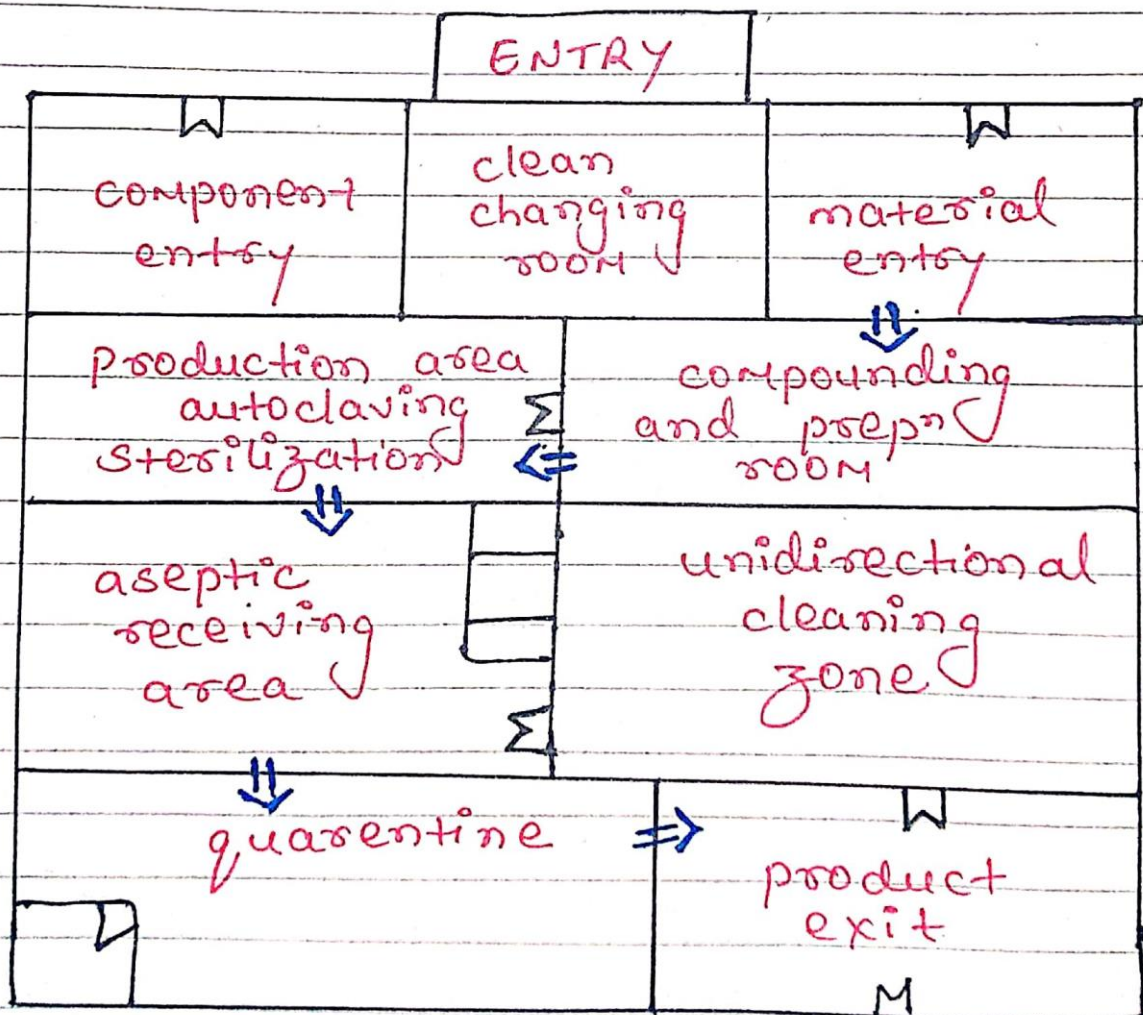 ENTRY
component
entry
clean
changing
room
material
entry
production area
autoclaving
sterilization
compounding
and prepn
room
aseptic
receiving
area
unidirectional
cleaning
zone
quarentine
product
exit